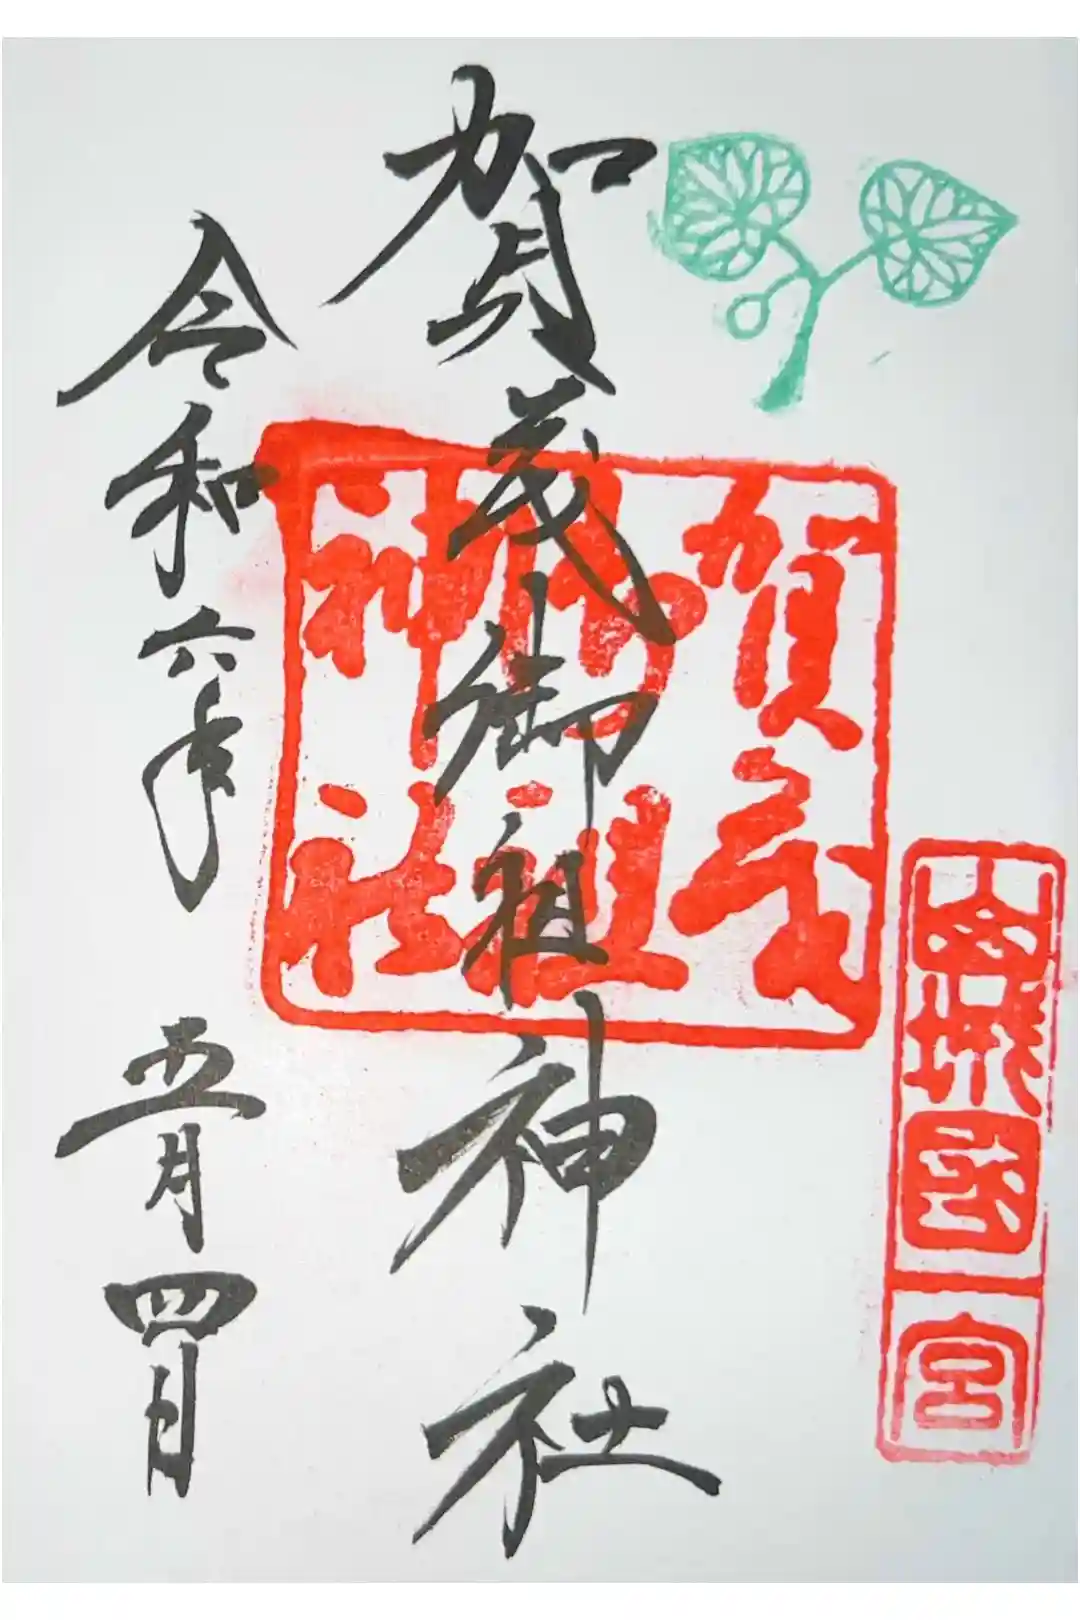 山城國一宮
賀茂
御祖
神社
賀茂御祖神社
令和六年 五月四日